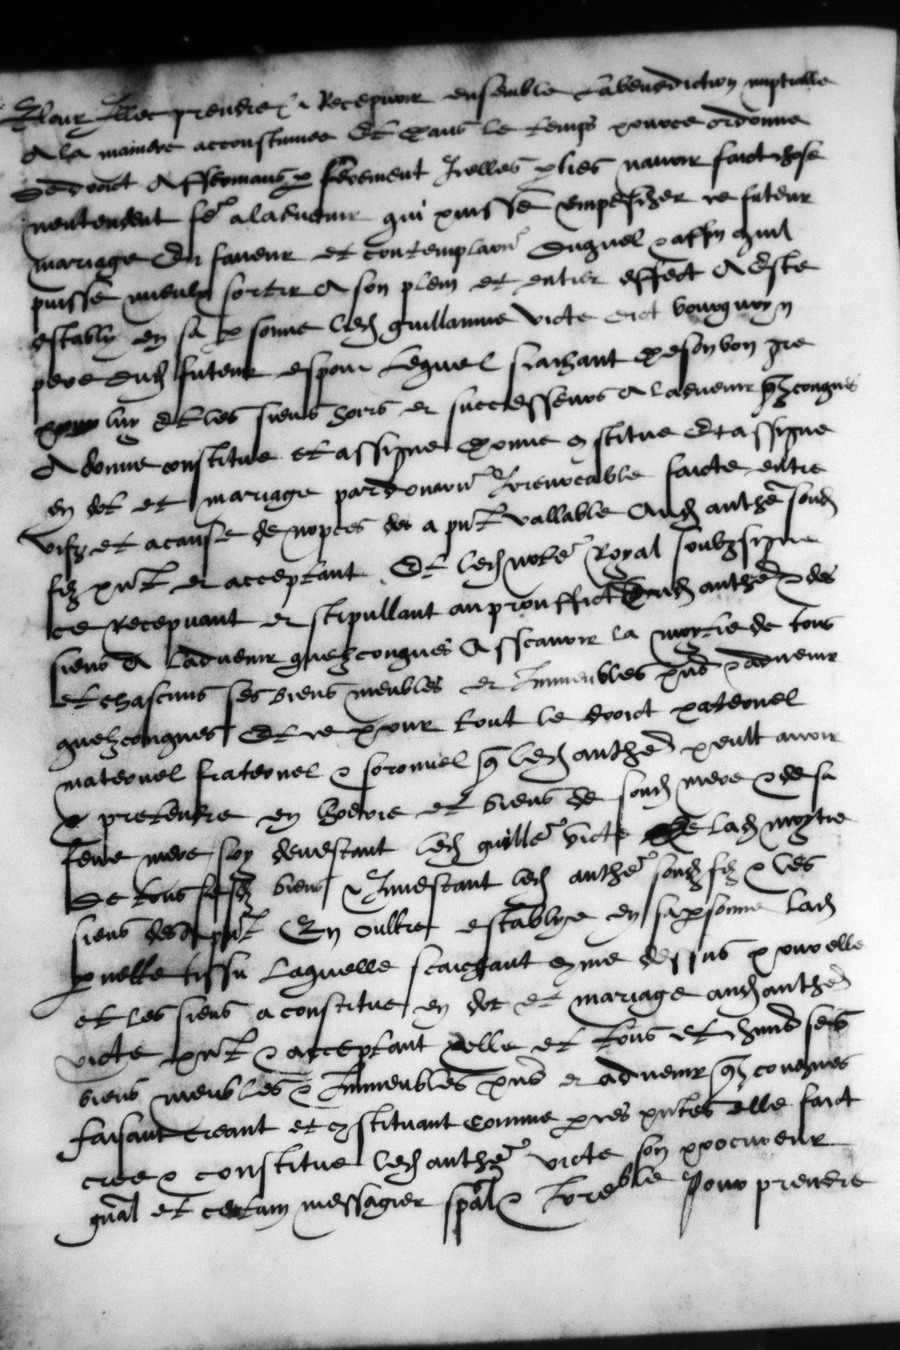 Pour Illec prendre & Recepvoir ensemble La benediction nuptialle
A la maniere accoustumee Et dans le temps porce ordonne
dedroict Affermans p serement Icelles pties navoir faict chose
nentendent fe a ladvenir qui puisse empescher ce futeur
mariage En faveur et contemplaon duquel & affin quil
puisse mieulx sortir A son plein et entier effect A Este
estably en sa psonne led guillaume viote dict bourguoyn
pere dud futeur espoux Lequel scaichant de son bon gre
pour luy Et les siens hoirs et successeurs A ladvenir qzcongues
A donne constitue et assigne donne constitue Et assigne
en dot et mariage par donaon Irrevocable faicte entre
vifz et a cause de nopces des a pnt vallable Aud anthe sond
filz pnt et acceptant Et led note Royal soubzsigne
ce recepvant et stipullant au prouffict dud anthe & des
siens A ladvenir quelzcongues Assçavoir la moytie de tous
et chascuns ses biens meubles et Immeubles pns & advenir
quelzcongues Et ce pour tout le droict paternel
maternel fraternel & soronnel q led anthe peult avoir
& pretendre en hoerie et biens de sond mere & de sa
feue mere soy devestant led guille viote de lad moytie
de tous sesd biens & Investant led anthe sond filz & les
siens des a pnt En oultre establye en sa psonne lad
pnelle tissu Laquelle scaichant come dessus pour elle
et les siens a constitue en dot et mariage aud anthe
viote pnt & acceptant elle et tous et chuns ses
biens meubles & Immeubles pns et advenir qzcongues
faisant creant et constituant comme p ces pntes elle faict
cree & constitue led anthe viote son procureur
gnal et certain messagier spal & Irreble Pour prendre